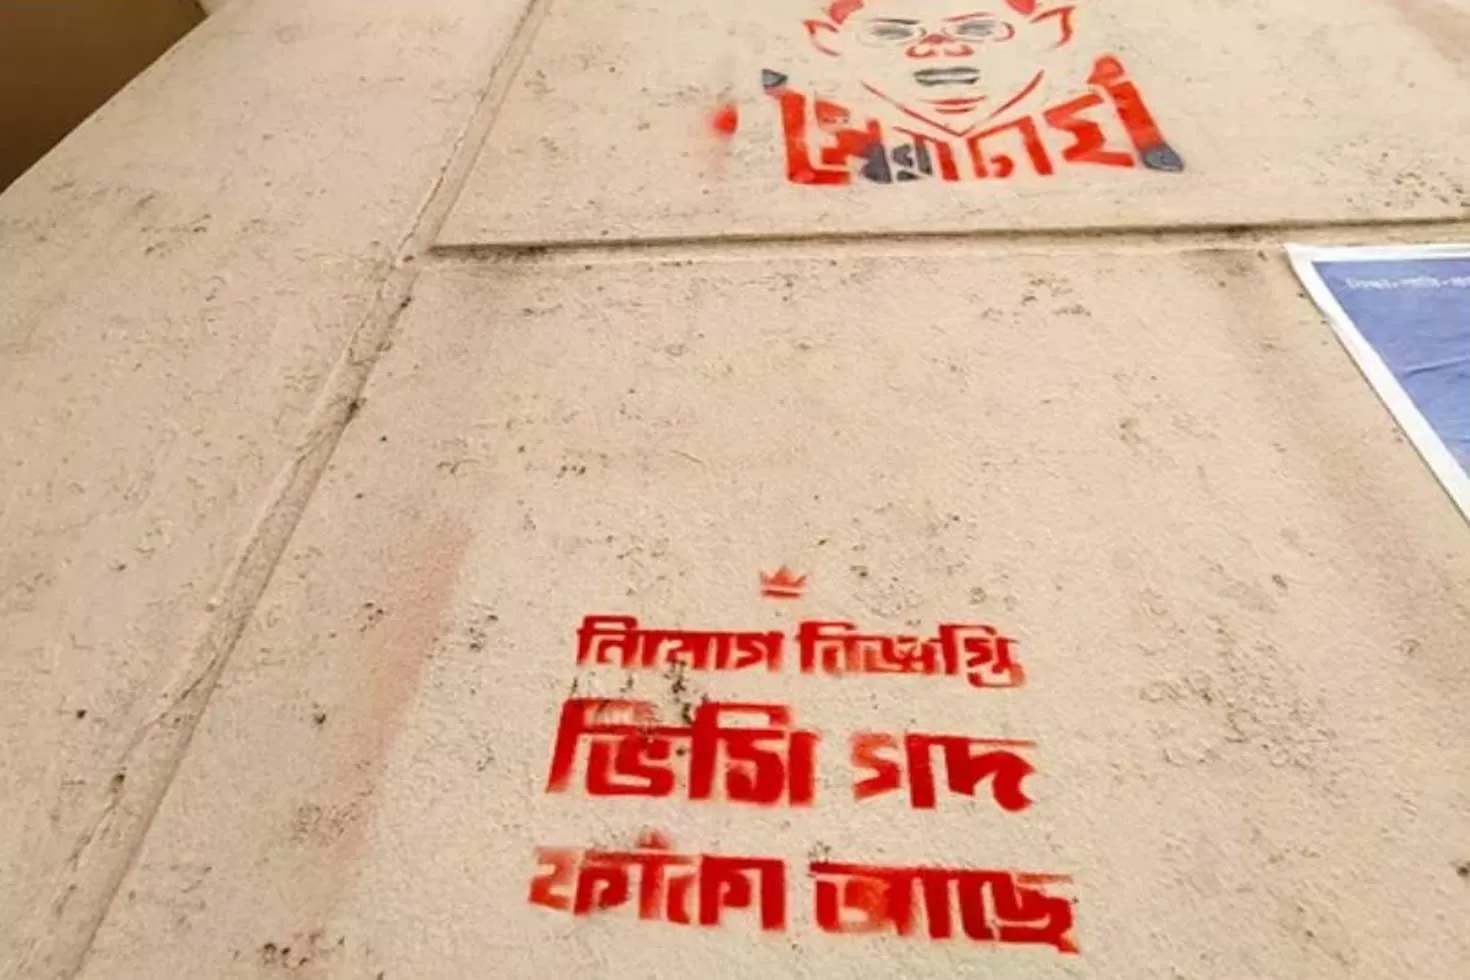 স্বৈরাচারী
নিয়োগ বিজ্ঞপ্তি
ভিসি পদ
ফাঁকা আছে